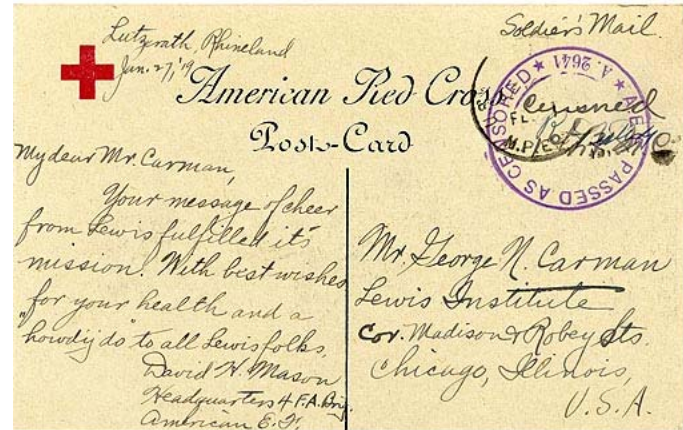 Lutzerath, Rhineland
Jan. 27, '19
Soldier's Mail.
American Red Cross
Post-Card
Censored
A.E.F. PASSED AS CENSORED
A. 2641
M.P.E.
My dear Mr. Carman,
Your message of cheer
from Lewis fulfilled it's
mission. With best wishes
for your health and a
"howdij do" to all Lewis folks,
David H. Mason
Headquarters 4 F.A. Brig.
American E. F.
Mr. George N. Carman
Lewis Institute
Cor. Madison & Robey Sts.
Chicago, Illinois,
U.S.A.